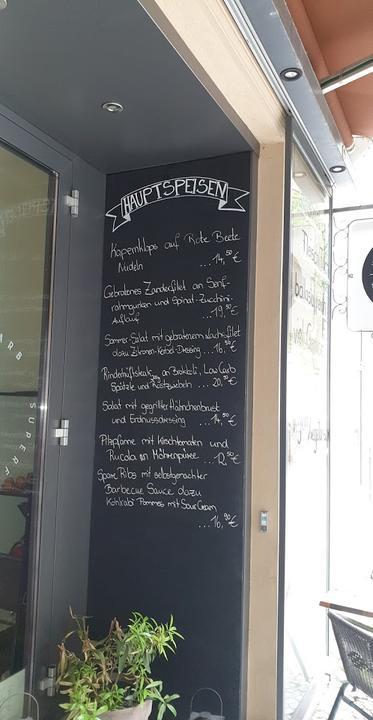 HAUPTSPEISEN
Kapernklops auf Rote Beete
Nudeln ...14,50€
Gebratenes Zanderfilet an Senf-
rahmgurken und Spinat-Zucchini-
Auflauf ...19,50€
Sommer Salat mit gebratenem Lachsfilet
dazu Zitronen-Kerbel-Dressing ...16,50€
Rinderhüftsteak an Brokkoli, Low Carb
Spätzle und Röstzwiebeln ...20,50€
Salat mit gegrillter Hähnchenbrust
und Erdnussdressing ...14,50€
Pilzpfanne mit Kirschtomaten und
Rucola an Möhrenpüree ...12,50€
Spare Ribs mit selbstgemachter
Barbecue Sauce dazu
Kohlrabi Pommes mit Sour Cream
...16,50€
ARB
SUPERF